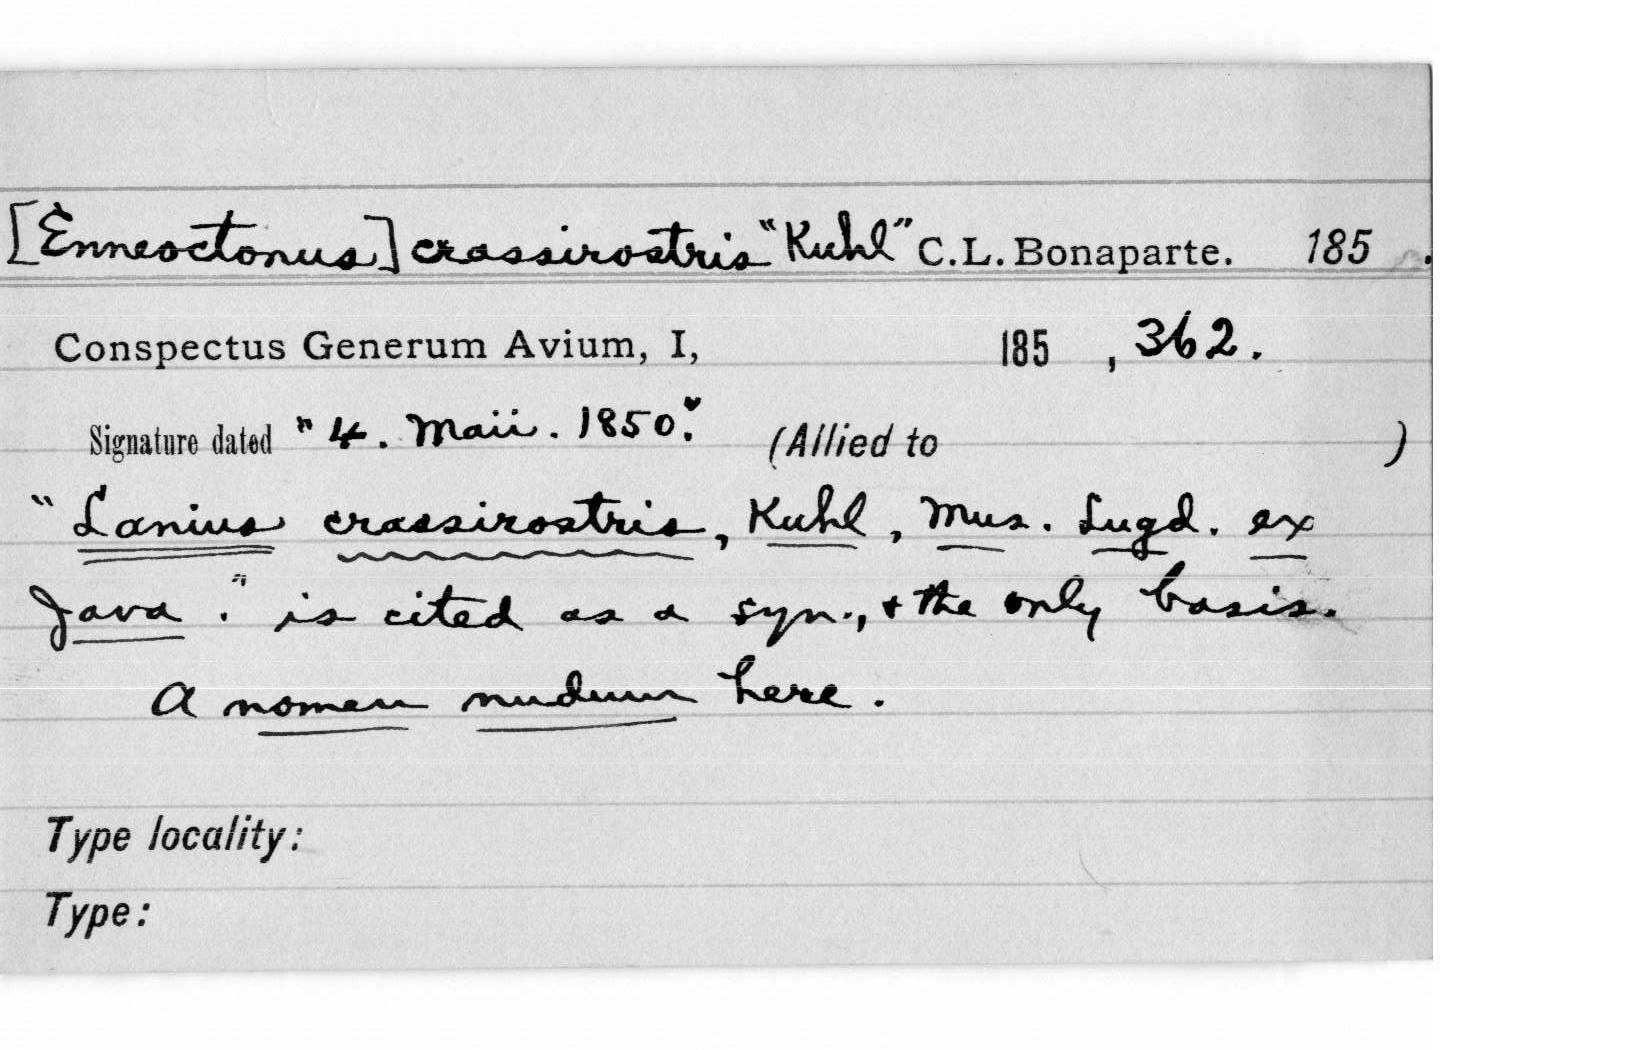 [Enneoctonus] crassirostris "Kuhl" C.L. Bonaparte. 185 .
Conspectus Generum Avium, I, 185 , 362.
Signature dated "4. Maii. 1850." (Allied to )
"Lanius crassirostris, Kuhl, Mus. Lugd. ex
Java." is cited as a syn., + the only basis.
A nomen nudum here.
Type locality:
Type: